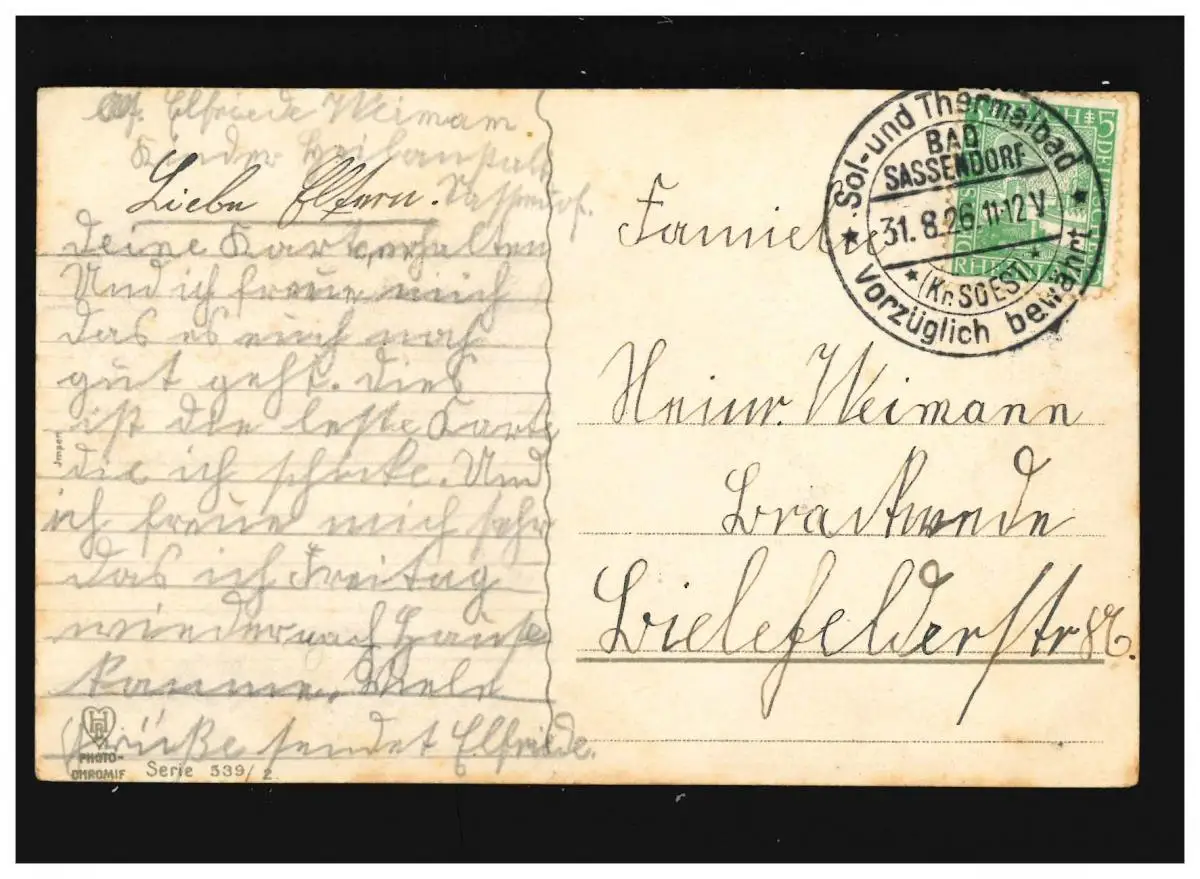 Elfriede Weimann
Kinder Heilanstalt
Sassendorf.
Liebe Eltern.
deine Karte erhalten
Und ich freue mich
das es euch noch
gut geht. dies
ist die leste Karte
die ich schicke. Und
ich freue mich sehr
das ich Freitag
wieder nach Hause
komme. Viele
Grüße sendet Elfriede.
Jmport
PHOTO-
CHROMIE
Serie 539/2
Sol- und Thermalbad
BAD
SASSENDORF
31.8.26.11-12 V
(Kr. SOEST)
Vorzüglich bewährt
5
Familie
Heinr. Weimann
Brackwede
Bielefelderstr 86.